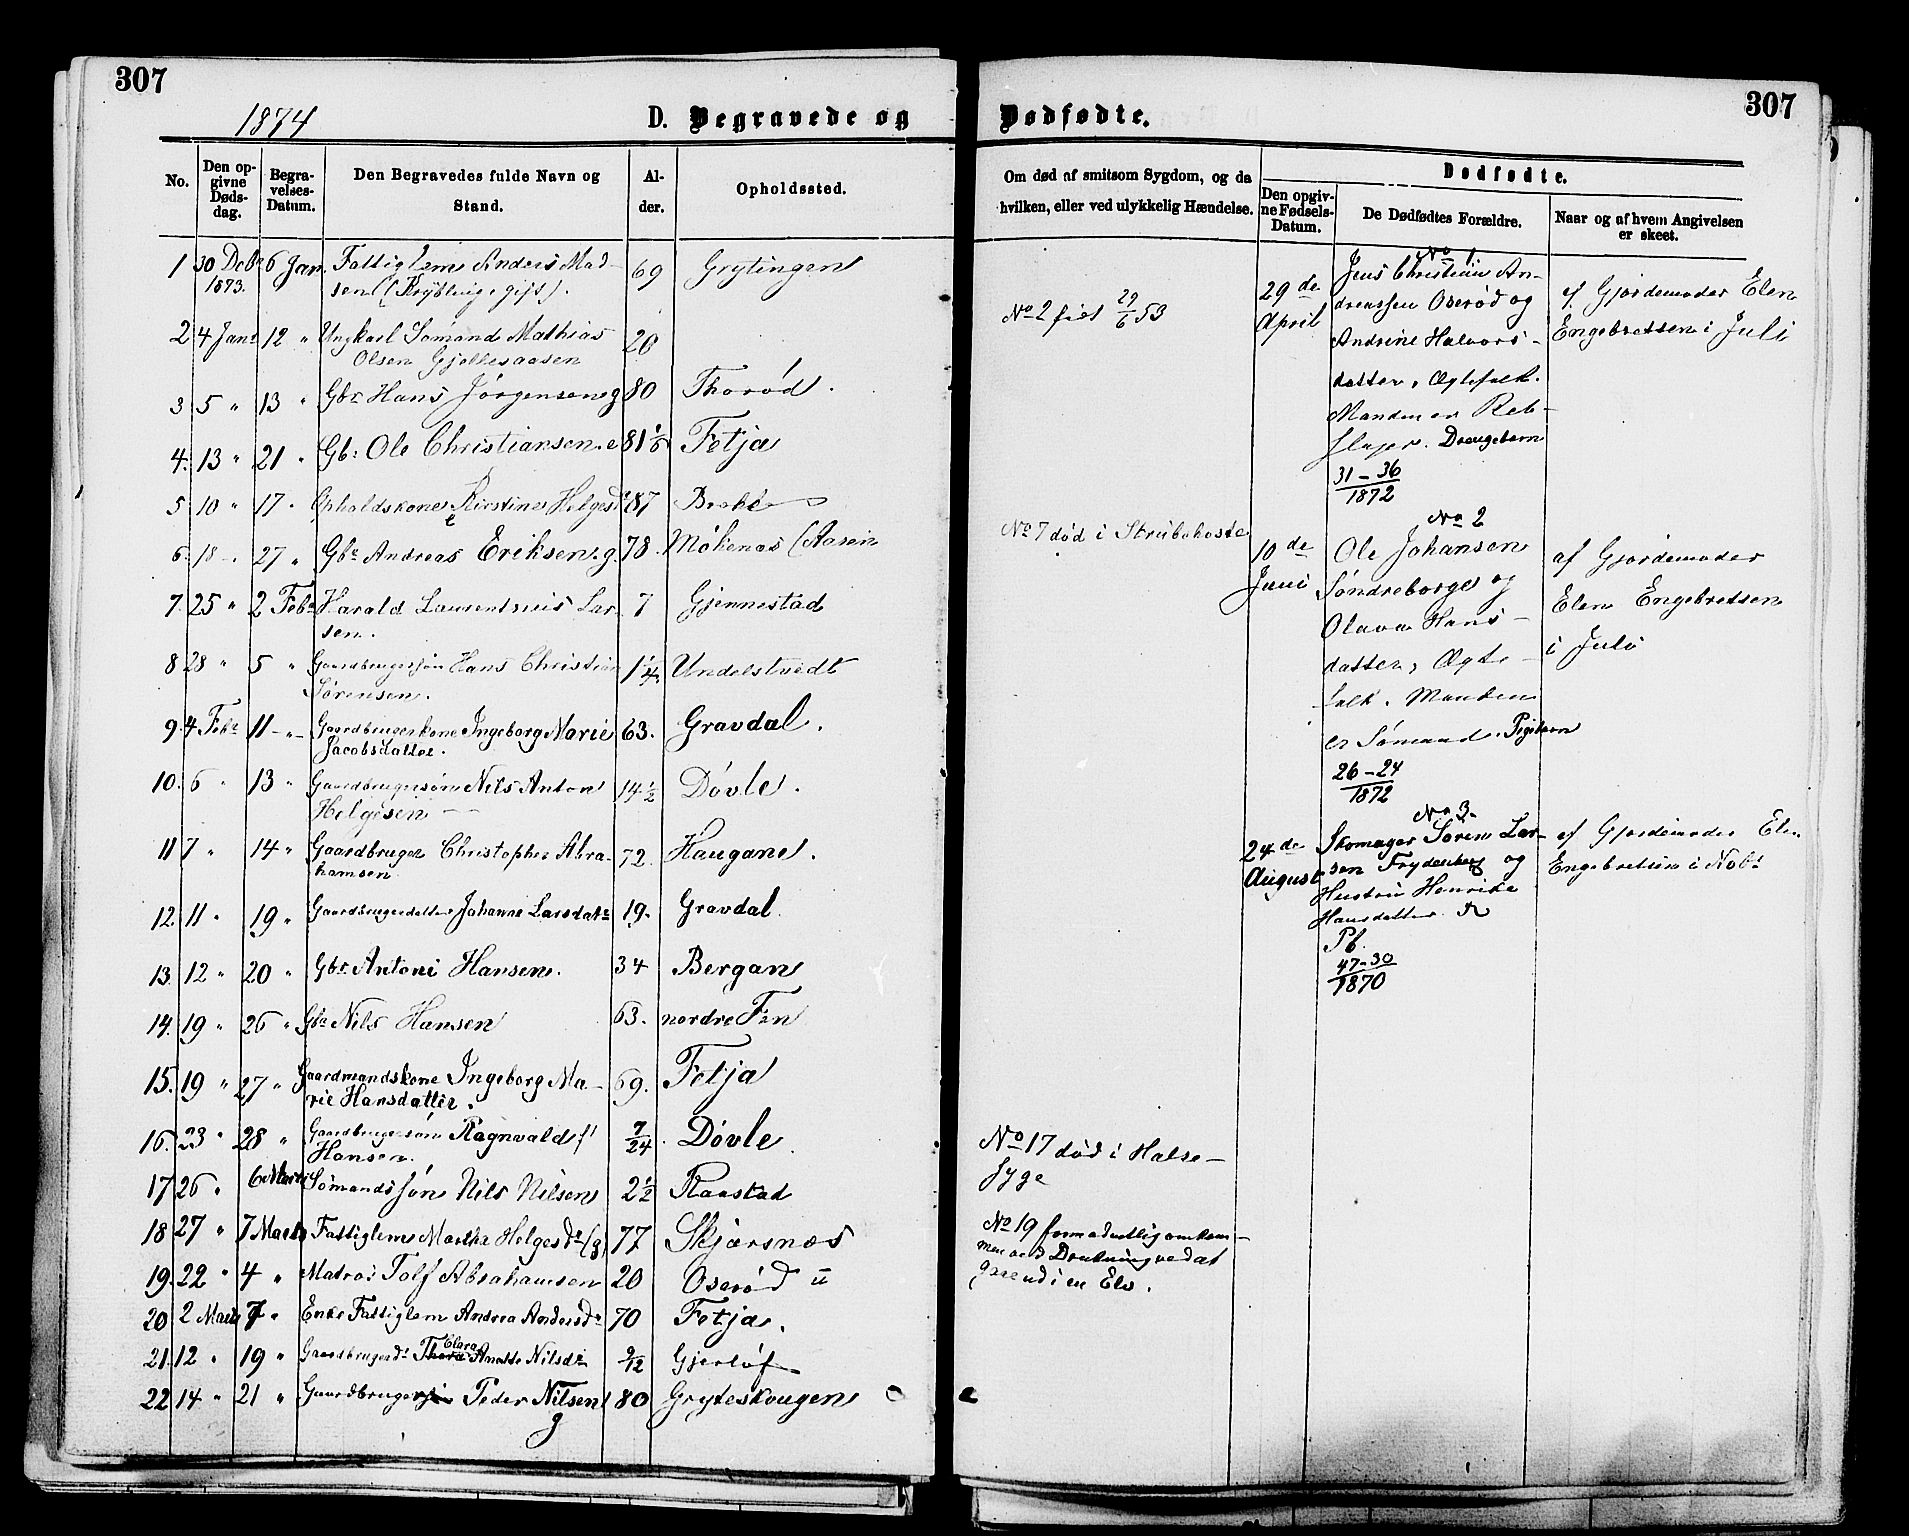 307
1874
D. Begravede og
No.
Den op-
givne
Døds-
dag.
Begra-
velses-
Datum.
Den Begravedes fulde Navn og
Stand.
Al-
der.
Opholdssted.
1 30 Decbr 6 Jan. Fattiglem Anders Mad- 69 Grytingen
1873. sen ( gift).
2 4 Janr 12 " Ungkarl Sømand Mathias 20
Olsen Gjellesaasen
3 5 " 13 " Gbr Hans Jørgensen g 80 Thorød.
4. 13 " 21 " Gbr Ole Christiansen. e 81 1/5 Fetja
5 10 " 17 " Opholdskone Kirstine Helgesdr 87
e
6. 18 " 27 " Gbr Andreas Eriksen. g. 78. Møkenas (Aasen
7. 25 " 2 Febr Harald Laurentsius Lar- 7 Gjennestad
sen.
8 28 " 5 " Gaardbrugersøn Hans Christian 1 1/4 Undelstvedt
Sørensen.
9. 4 Febr 11 - " - Gaardbrugerkone Ingeborg Marie 63. Gravdal.
Jacobsdatter.
10. 6 " 13 " Gaardbrugersøn Nils Anton 14 1/2 Døvle.
Helgesen
11 7 " 14 " Gaardbruger Christopher Abra- 72. Haugane.
hamsen
12. 11 " 19 " Gaardbrugerdatter Johanne Larsdatr 19. Gravdal.
13. 12 " 20 " Gbr Antoni Hansen. 34 Bergan
14. 19 " 26 " Gbr Nils Hansen 63. nordre Fen
15. 19 " 27 " Gaardmandskone Ingeborg Ma- 69. Fetja
rie Hansdatter.
16. 23 " 28 " Gaardbrugersøn Ragnvald 7/24. Døvle.
Hansen.
17 26 " 6 Marts Sømandssøn Nils Nilsen 2 1/2 Raastad
18 27 " 7 Marts Fattiglem Martha Helgesdr (g) 77 Skjærsnæs
19. 22 " 4 " Matros Tolf Abrahamsen 20 Oserød
20 2 Marts 7 " Enke Fattiglem Andrea Andersdr 70 Fetja.
Clara
21. 12 " 19 " Gaardbrugerdr Thora Anette Nilsdr 9/12 Gjerløf
22 14 " 21 " Gaardbruger Peder Nilsen 80 Gryteskougen
g
307
Dødfødte.
Om død af smitsom Sygdom, og da
hvilken, eller ved ulykkelig Hændelse.
Dødfødte.
Den opgiv-
ne Fødsels-
Datum.
De Dødfødtes Forældre.
Naar og af hvem Angivelsen
er skeet.
No 2 født 29/6 53
No 7 død i Strubehoste
No 17 død i Halse-
syge
No 19 formodentlig omkom-
men ved Drukning ved at
gaae ud i en Elv.
29de
April
No 1
Jens Christian An-
dreassen Oserød og
Andrine Halvors-
datter, Ægtefolk.
Manden er Reb-
slager. Drengebarn
31-36
1872
af Gjordemoder Elen
Engebretsen i Juli
10de
Juni
No 2
Ole Johansen
Søndreborge og
Olava Hans-
datter, Ægte-
folk. Manden
er Sømand. Pigebarn
26-24
1872
af Gjordemoder
Elen Engebretsen
i Juli
24de
August
No 3
Skomager Søren Lar-
sen Frydenberg og
Hustru Henrike
Hansdatter
Pb.
47-30
1870
af Gjordemoder Elen
Engebretsen i Novbr